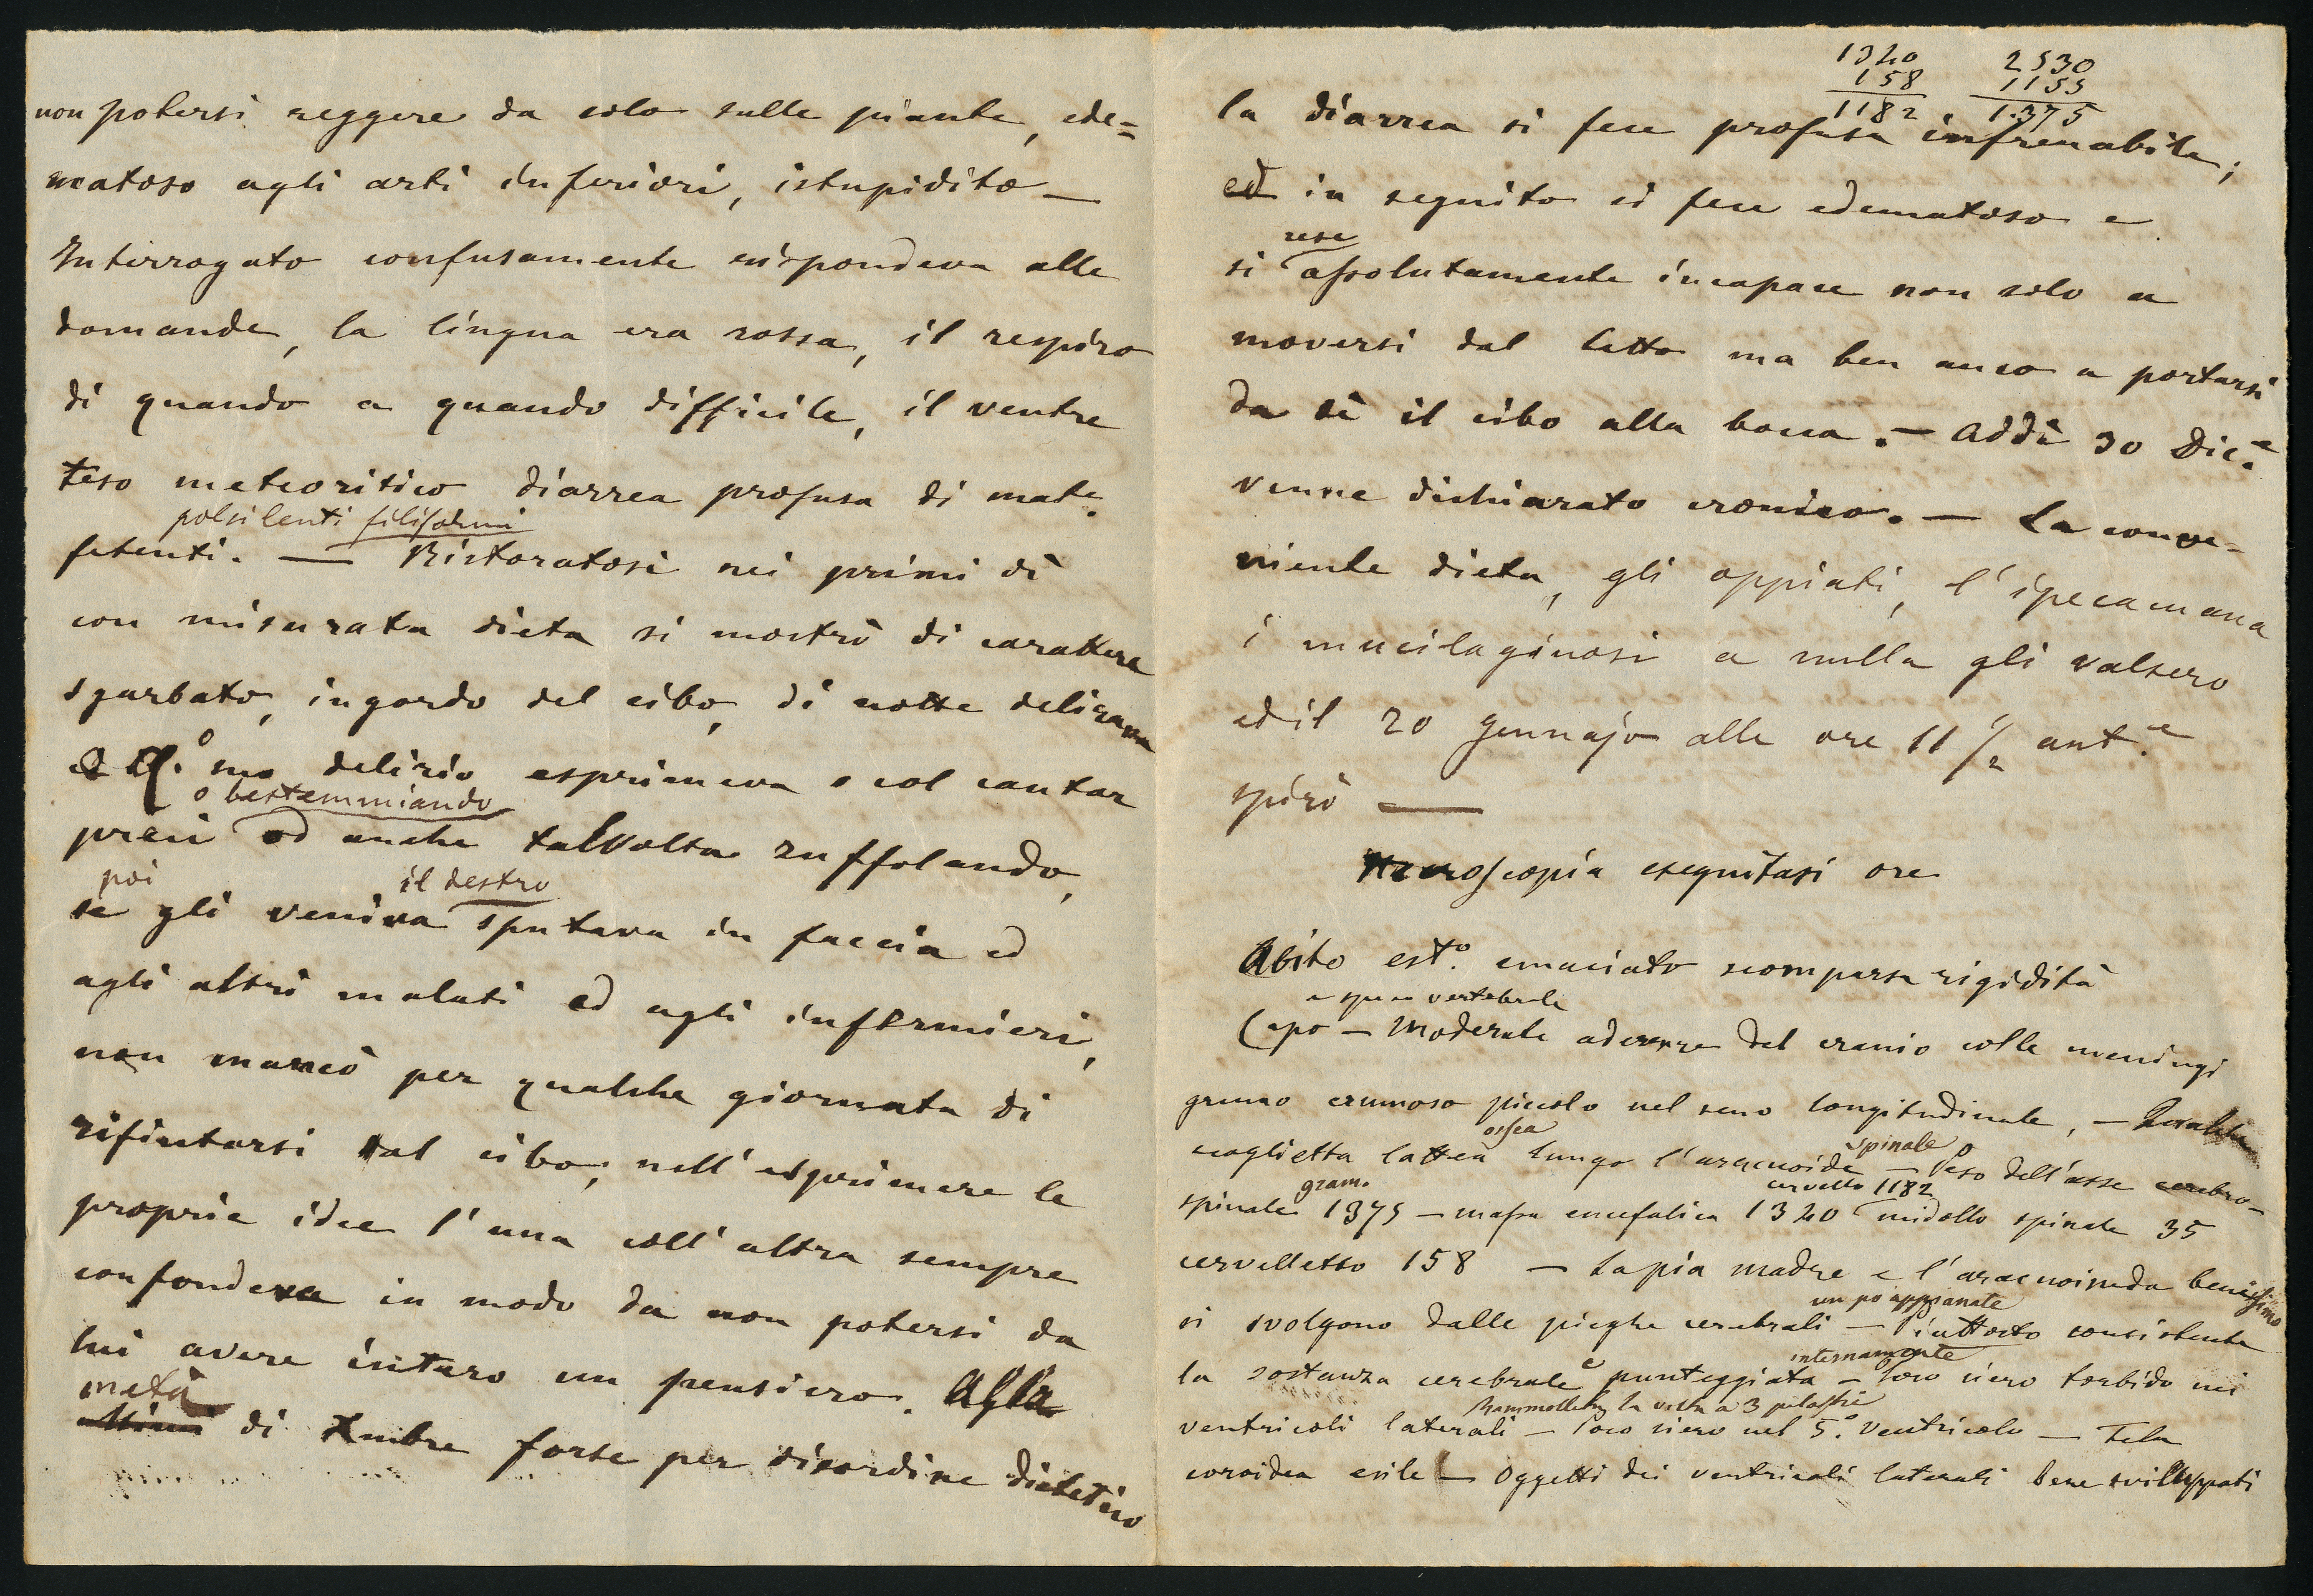 non potersi reggere da solo sulle piante, ede=
matoso agli arti inferiori, istupidito —
Interrogato confusamente rispondeva alle
domande, la lingua era rossa, il respiro
di quando a quando difficile, il ventre
teso meteoritico diarrea profusa di mate.
polsi lenti filiformi
fetenti. — Ristoratosi nei primi dì
con misurata dieta si mostrò di carattere
sgarbato, ingordo del cibo, di notte delirava
suo delirio esprimeva o col cantar
o bestemmiando
preci od anche talvolta zuffolando,
poi il destro
se gli veniva sputava in faccia ed
agli altri malati ed agli infermieri,
non mancò per qualche giornata di
rifiutarsi dal cibo; nell'esprimere le
proprie idee l'una coll'altra sempre
confondeva in modo da non potersi da
lui avere intero un pensiero. Alla
metà
di Xmbre forse per disordine dietetico
1340 2530
158 1155
1182 1375
la diarrea si fece profusa infrenabile;
ed in seguito si fece edematoso e
rese
si assolutamente incapace non solo a
moversi dal letto ma ben anco a portarsi
da sè il cibo alla bocca. — Addì 30 Dic.e
venne dichiarato cronico. — La conve-
niente dieta, gli oppiati, l'ipecacuana
i mucilaginosi a nulla gli valsero
ed il 20 Gennajo alle ore 11 1/2 ant.e
spirò —
Necroscopia eseguitasi ore
Abito est.o emaciato scomparsa rigidità
e speco vertebrale
Capo — Moderate aderenze del cranio colle meningi
grumo crumoso piccolo nel seno longitudinale, — Qualche
ossea spinale
scaglietta lattea lungo l'aracnoide — Peso dell'asse cerebro-
gram. cervello 1182
spinale 1375 — massa encefalica 1340 midollo spinale 35
cervelletto 158 — La pia madre e l'aracnoidea benissimo
un po appianate
si svolgono dalle pieghe cerebrali — piuttosto consistente
e internamente
la sostanza cerebrale punteggiata — Poco siero torbido nei
la volta a 3 pilastri
ventricoli laterali — Poco siero nel 5.o Ventricolo — Tela
coroidea esile — Oggetti dei ventricoli laterali bene sviluppati